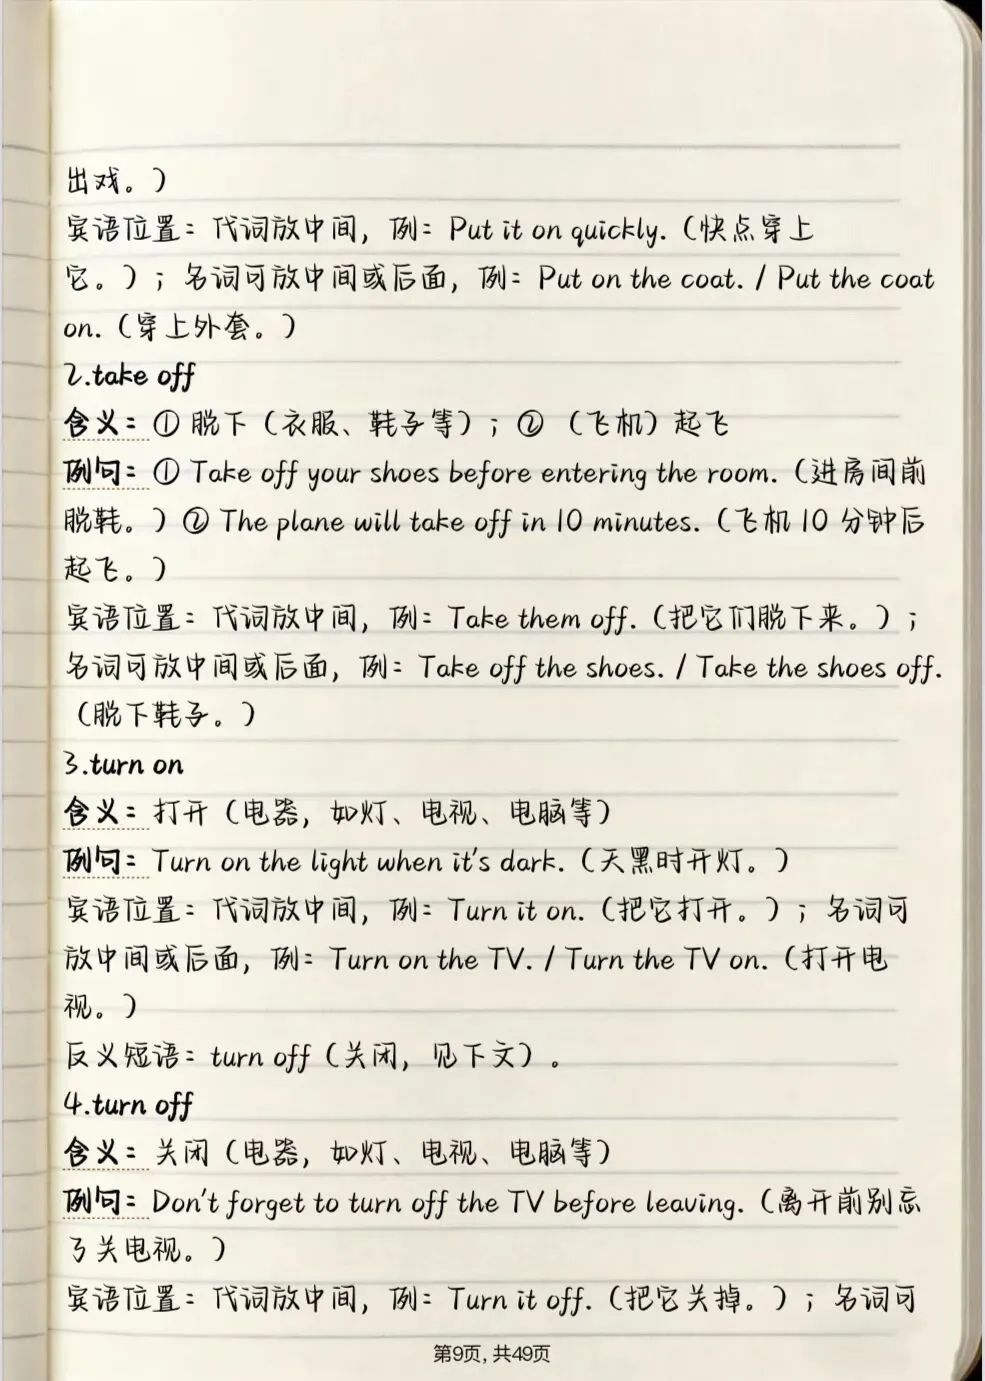 出戏。）
宾语位置：代词放中间，例：Put it on quickly.（快点穿上
它。）；名词可放中间或后面，例：Put on the coat. / Put the coat
on.（穿上外套。）
2.take off
含义：① 脱下（衣服、鞋子等）；② （飞机）起飞
例句：① Take off your shoes before entering the room.（进房间前
脱鞋。）② The plane will take off in 10 minutes.（飞机 10 分钟后
起飞。）
宾语位置：代词放中间，例：Take them off.（把它们脱下来。）；
名词可放中间或后面，例：Take off the shoes. / Take the shoes off.
（脱下鞋子。）
3.turn on
含义：打开（电器，如灯、电视、电脑等）
例句：Turn on the light when it's dark.（天黑时开灯。）
宾语位置：代词放中间，例：Turn it on.（把它打开。）；名词可
放中间或后面，例：Turn on the TV. / Turn the TV on.（打开电
视。）
反义短语：turn off（关闭，见下文）。
4.turn off
含义：关闭（电器，如灯、电视、电脑等）
例句：Don't forget to turn off the TV before leaving.（离开前别忘
了关电视。）
宾语位置：代词放中间，例：Turn it off.（把它关掉。）；名词可
第9页, 共49页